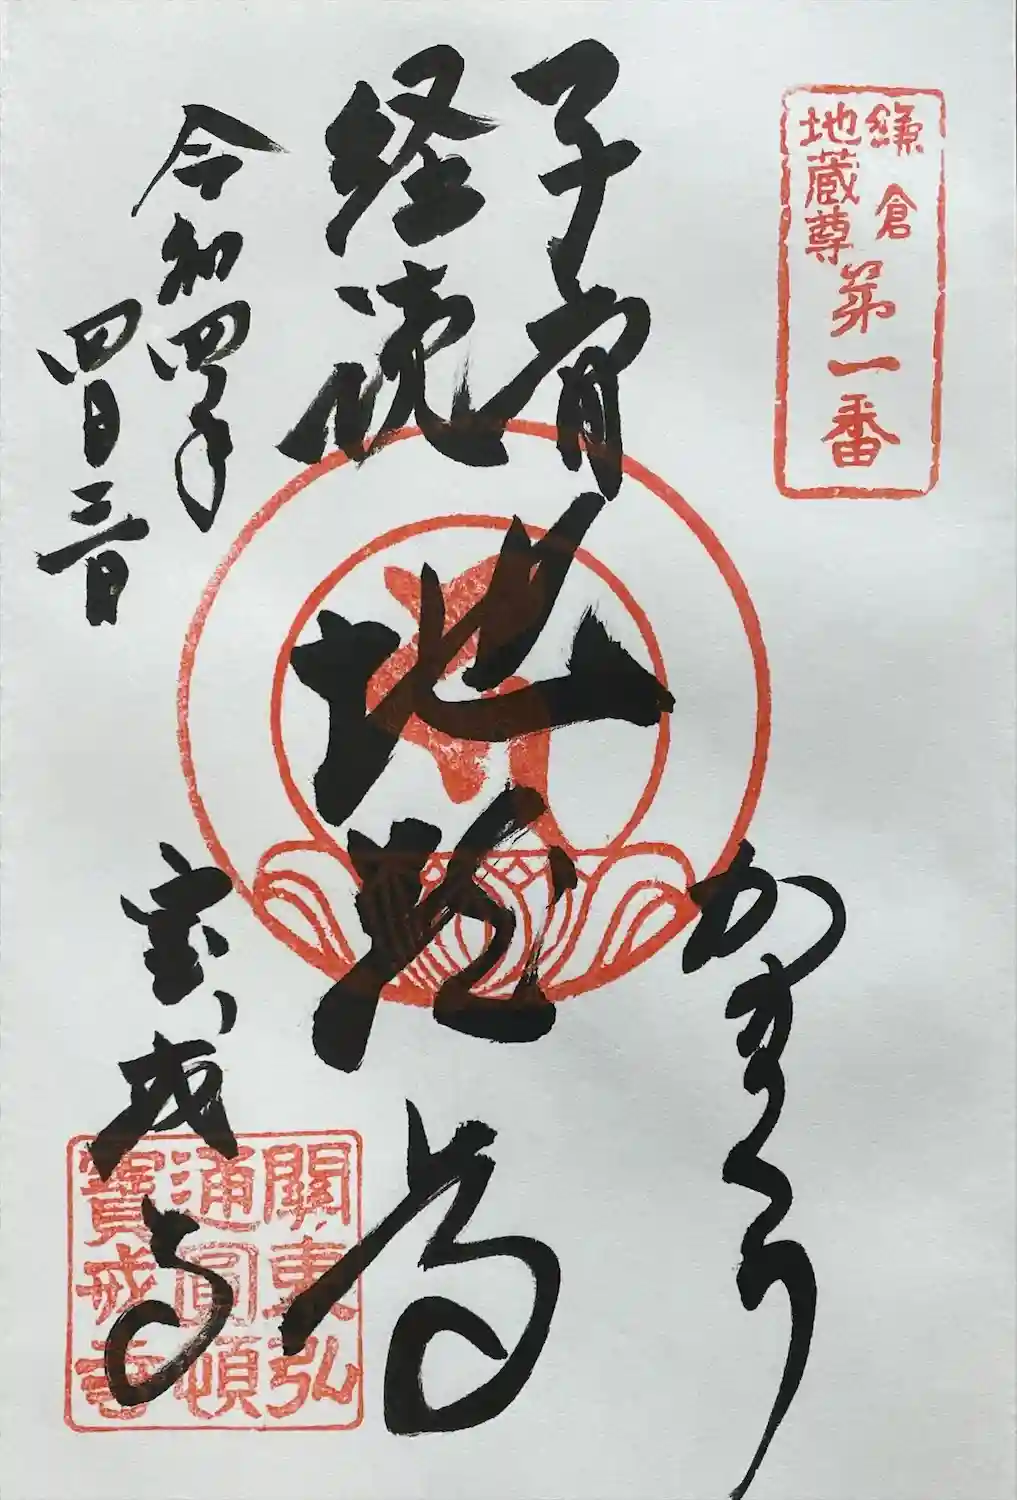 鎌倉
地蔵尊
第一番
かまくら
子育
経読
地蔵尊
令和四年
四月三日
宝戒寺
關東弘
通圓頓
寶戒寺